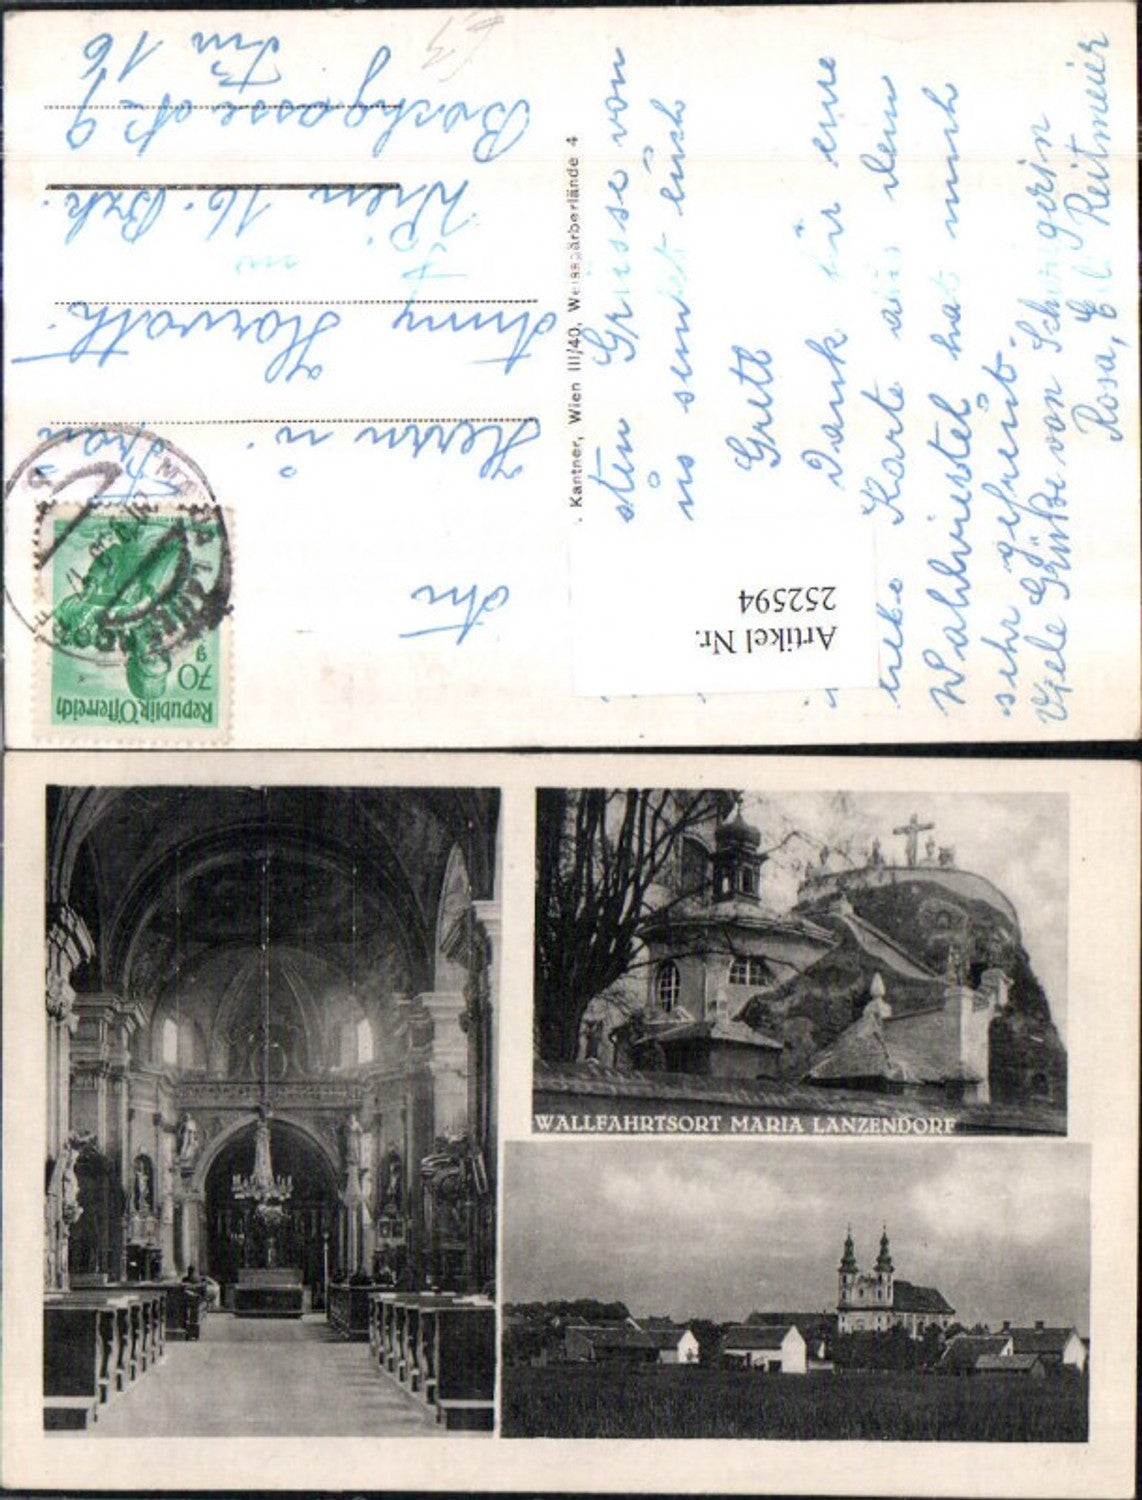 An
Herrn u. Frau
Anny Horvath
in
Wien 16. Bzk.
Brockgasse No 9
Tür 16
Republik Österreich
70 g
Kantner, Wien III/40, Weissgärberlände 4
Artikel Nr.
252594
sten Grüsse von
uns sendet euch
Gretl
Dank für eine
liebe Karte aus dem
Waldviertel hat mich
sehr gefreut.
Viele Grüße von Schwägerin
Rosa, Edi Reitmeier
WALLFAHRTSORT MARIA LANZENDORF